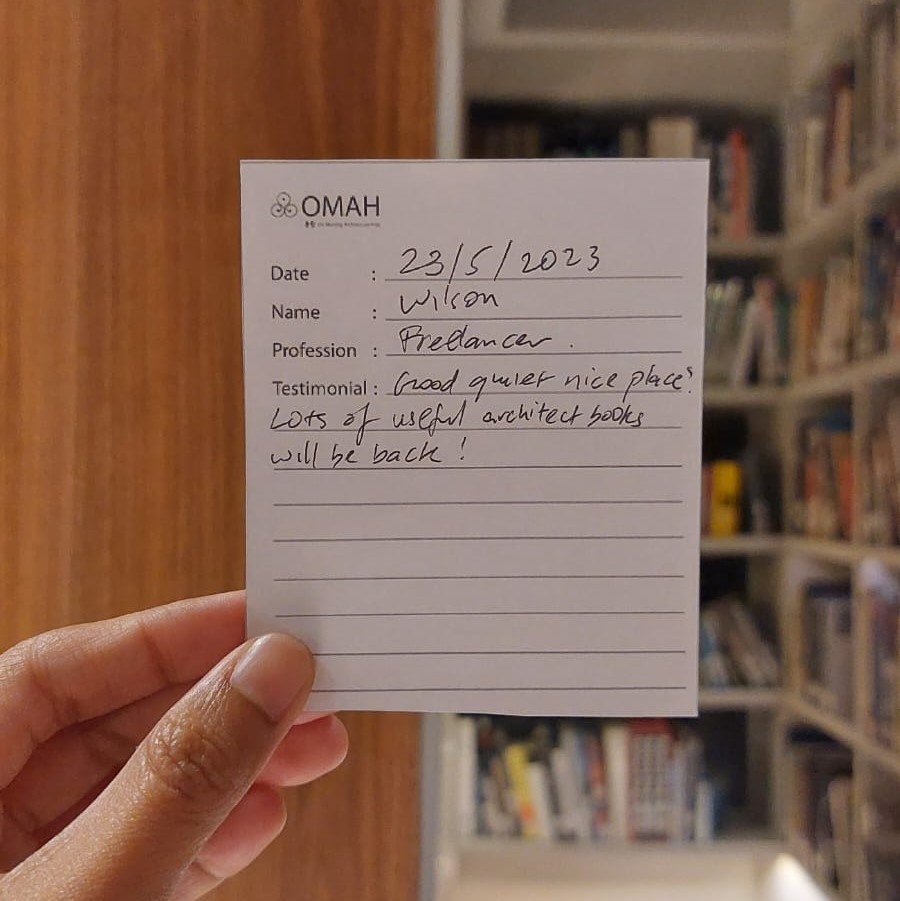 OMAH
Date : 23/5/2023
Name : Wilson
Profession : Freelancer.
Testimonial : Good quiet nice place!
Lots of useful architect books
will be back!